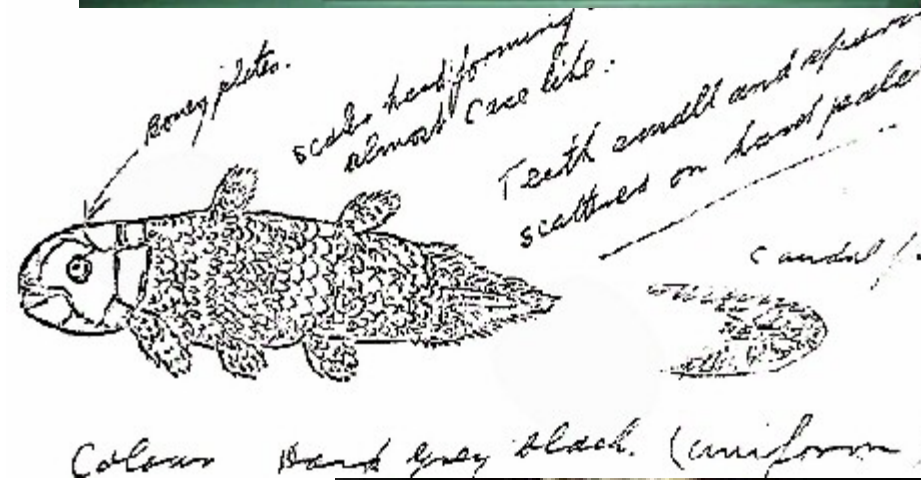 Boney plates.
scales hard forming
almost case like.
Teeth small and
scattered on hard
Caudal
Colour Hard grey black. (uniform